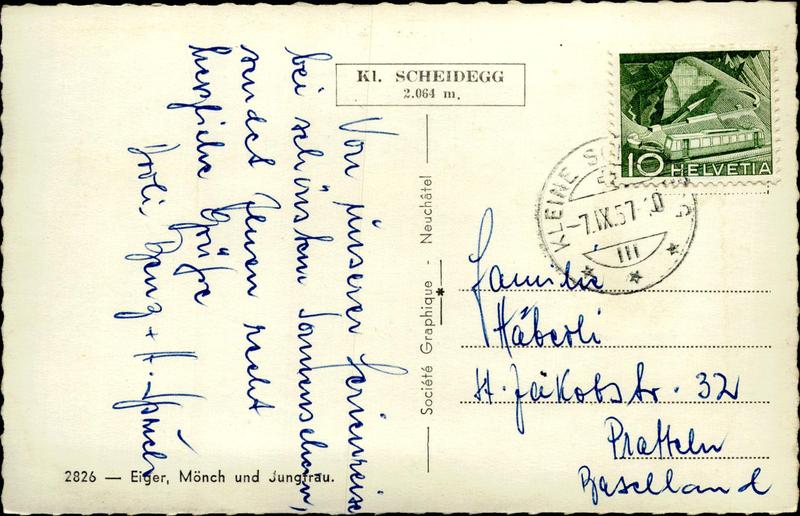 Kl. SCHEIDEGG
2.064 m.
Von unserer Ferienreise
bei schönstem Sonnenschein,
sendet Ihnen recht
herzliche Grüsse
10 HELVETIA
KLEINE
-7.IX.57
III
Société Graphique - Neuchâtel
Familie
Häberli
St. Jakobstr. 32
Pratteln
Baselland
2826 — Eiger, Mönch und Jungfrau.